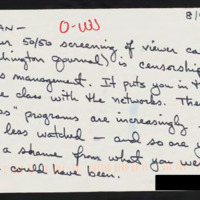 AN — O-W 8/
ur 50/50 screening of viewer ca
hington Journal) is censorship
s management. It puts you in t
e class with the networks. The
os" programs are increasingly
less watched — and so are y
a shame from what you we
could have been.